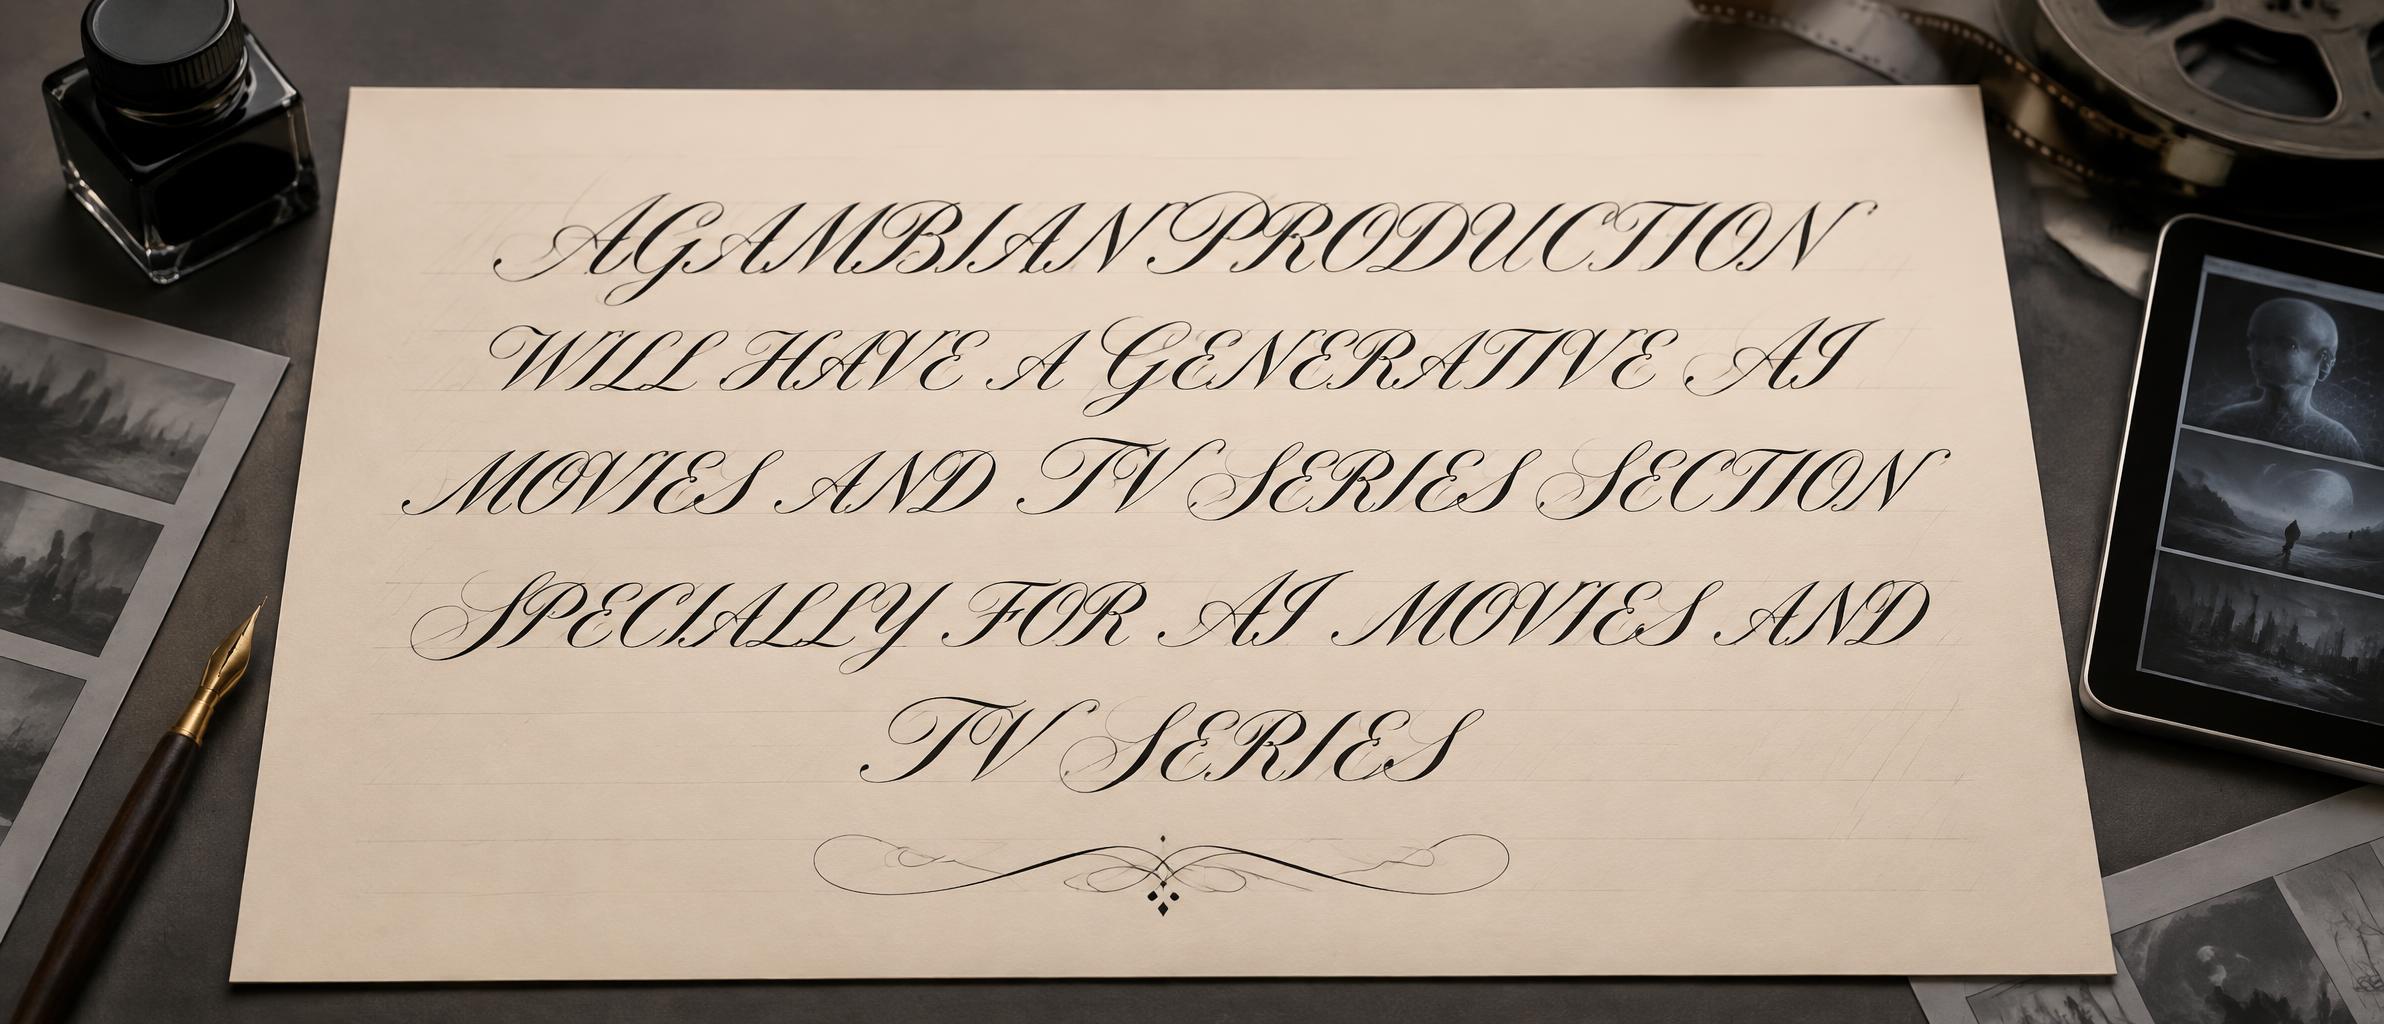 AGAMBIAN PRODUCTION
WILL HAVE A GENERATIVE AI
MOVIES AND TV SERIES SECTION
SPECIALLY FOR AI MOVIES AND
TV SERIES